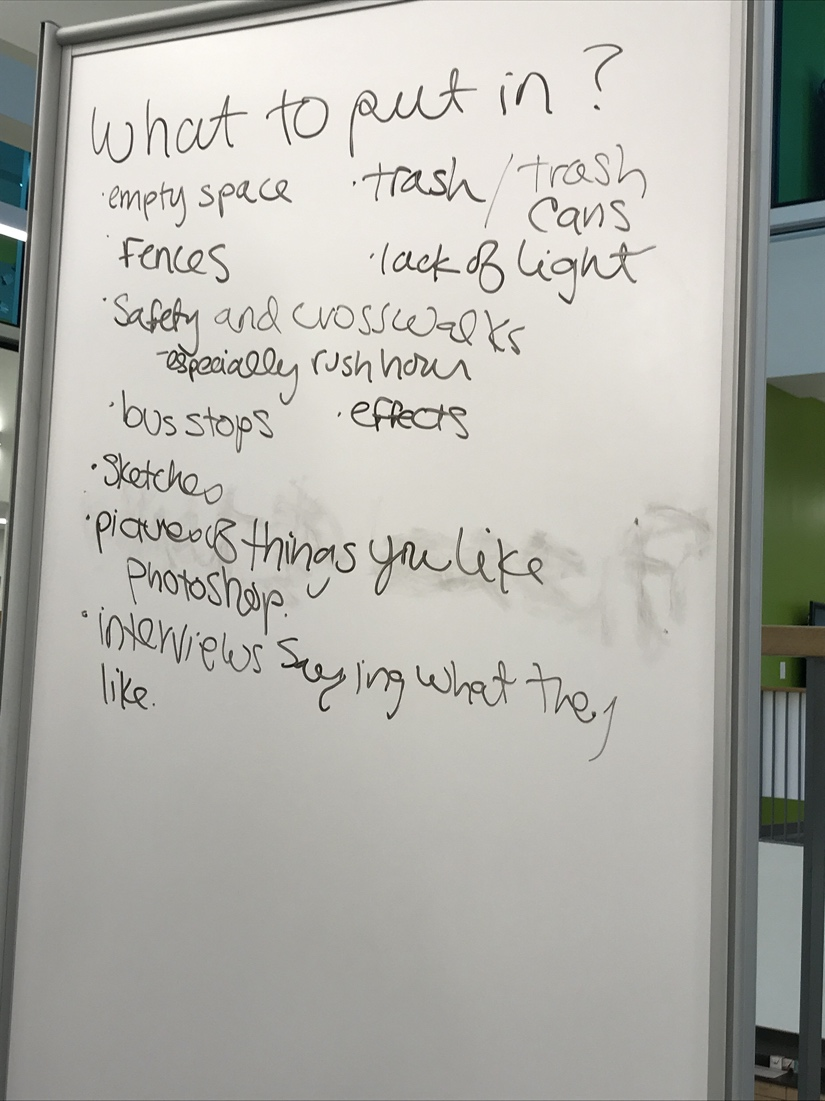 What to put in?
· empty space · trash / trash cans
· Fences · lack of light
· Safety and crosswalks
- especially rush hour
· bus stops · effects
· Sketches
· pictures of things you like
Photoshop.
· interviews saying what they
like.